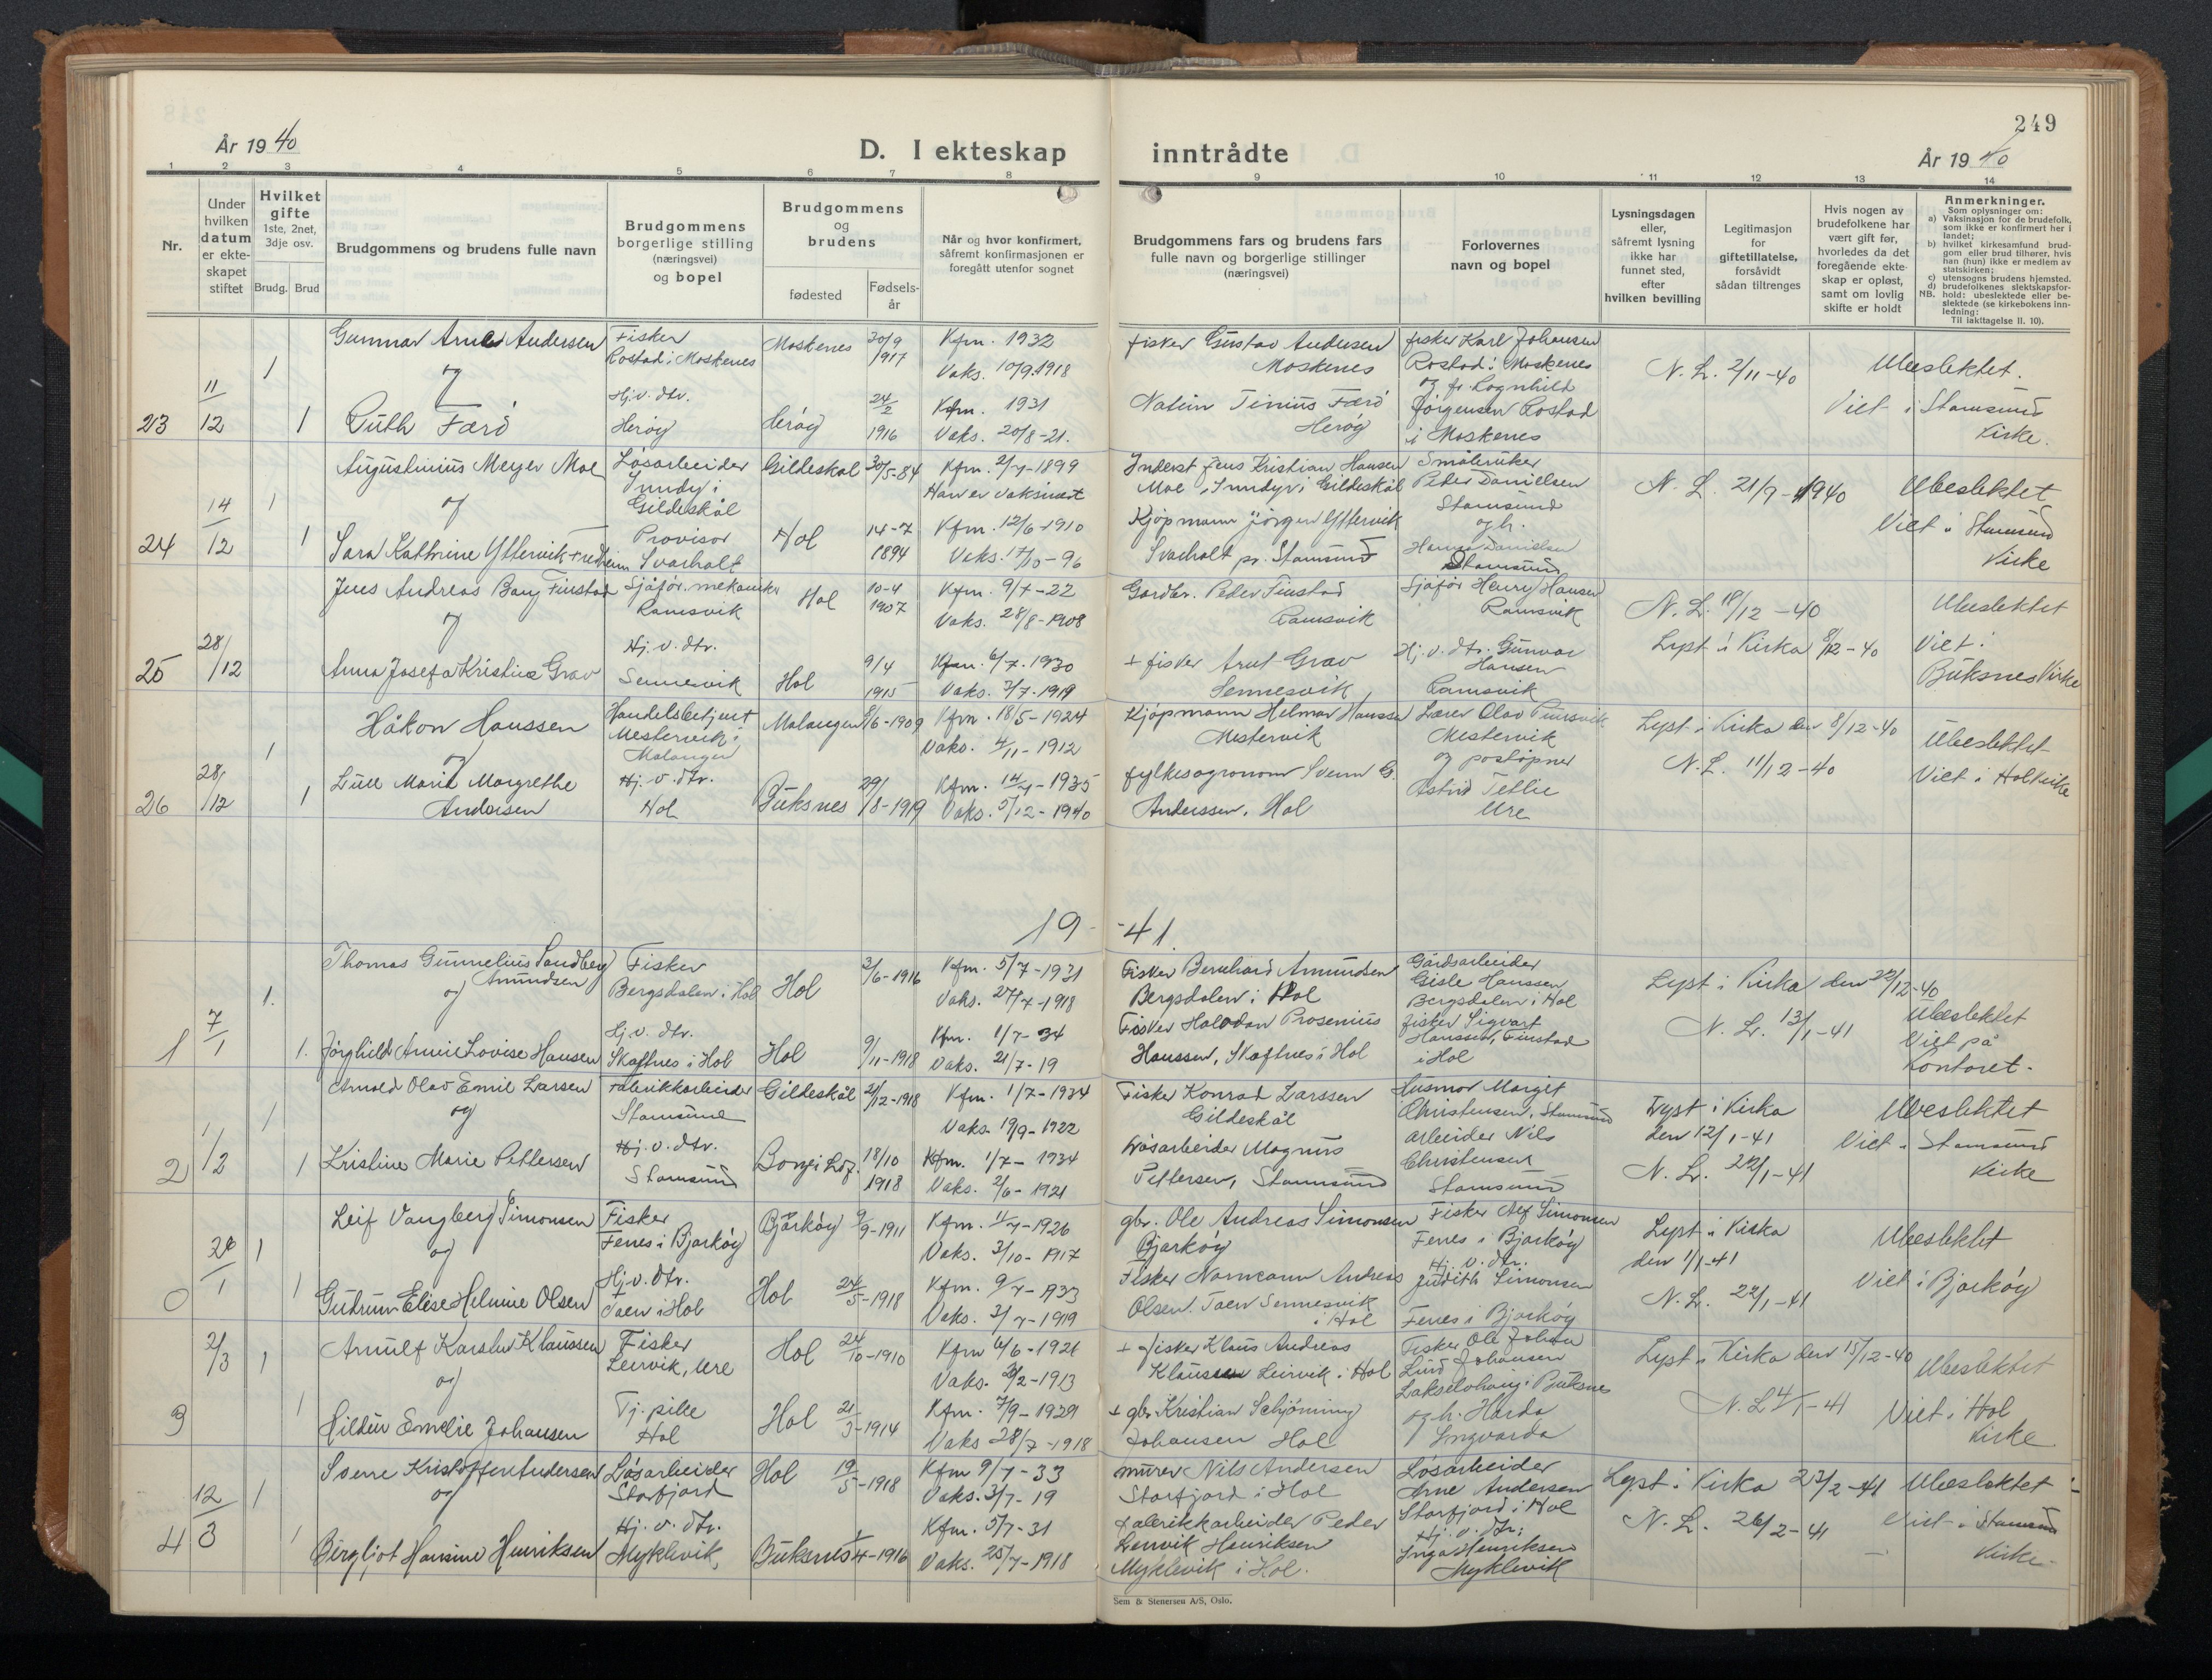 249
År 1940
D. I ekteskap inntrådte
År 1940
1 2 3 4 5 6 7 8 9 10 11 12 13 14
Nr.
Under hvilken datum er ekteskapet stiftet
Hvilket gifte
1ste, 2net, 3dje osv.
Brudg. Brud
Brudgommens og brudens fulle navn
Brudgommens borgerlige stilling (næringsvei) og bopel
Brudgommens og brudens
fødested
Fødselsår
Når og hvor konfirmert, såfremt konfirmasjonen er foregått utenfor sognet
Brudgommens fars og brudens fars fulle navn og borgerlige stillinger (næringsvei)
Forlovernes navn og bopel
Lysningsdagen eller, såfremt lysning ikke har funnet sted, efter hvilken bevilling
Legitimasjon for giftetillatelse, forsåvidt sådan tiltrenges
Hvis nogen av brudefolkene har vært gift før, hvorledes da det foregående ekteskap er opløst, samt om lovlig skifte er holdt
Anmerkninger.
Som oplysninger om:
a) Vaksinasjon for de brudefolk, som ikke er konfirmert her i landet;
b) hvilket kirkesamfund brudgom eller brud tilhører, hvis han (hun) ikke er medlem av statskirken;
c) utensogns brudens hjemsted.
d) brudefolkenes slektskapsforhold: ubeslektede eller beslektede (se kirkebokens innledning:
NB. Til iakttagelse II. 10).
23 11/12 1 1
Gunnar Arne Andersen
og
Ruth Færö
Fisker
Rostad i Moskenes
Hj.v. dtr.
Herøy
Moskenes 30/9 1917
Herøy 24/2 1916
Kfm. 1932
Vaks. 10/9.1918
Kfm. 1931
Vaks. 20/8-21.
fisker Gustav Andersen
Moskenes
Tinius Færö
Herøy
fisker Karl Johansen
Rostad i Moskenes
og fr. Ragnhild
Jørgensen Rostad
i Moskenes
N. L. 2/11-40
Ubeslektet.
Viet i Stamsund
Kirke.
24 14/12 1 1
Augustinius Meyer Moe
og
Sara Kathrine Yttervik
Løsarbeider
Inndyr i
Gildeskål
Provisor
Svarholt
Gildeskål 30/5-84
Hol 14-7 1894
Kfm. 2/7-1899
Han er vaksinert
Kfm. 12/6-1910
Vaks. 17/10-96
Inderst Jens Kristian Hansen
Moe, Inndyr i Gildeskål
Kjøpmann Jörgen Yttervik
Svarholt pr. Stamsund
Småbruker
Peder Danielsen
Stamsund
og h.
Hanna Danielsen
Stamsund
N. L. 21/9-1940
Ubeslektet
Viet i Stamsund
Kirke
25 28/12
Jens Andreas Bang Finstad
og
Anna Josefa Kristine Grav
Sjåfør. mekaniker
Ramsvik
Hj. v. dtr.
Sennesvik
Hol 10-4 1907
Hol 9/4 1915
Kfm. 9/7-22
Vaks. 28/8-1908
Kfm. 6/7.1930
Vaks. 3/7.1919
Gårdbr. Peder Finstad
Ramsvik
+ fisker Arnt Grav
Sennesvik
Sjåfør Henry Hansen
Ramsvik
Hj. v. dtr. Gunvor
Hansen
Ramsvik
N. L. 18/12-40
Lyst i Kirka 8/12-40
Ubeslektet
Viet i
Buksnes Kirke
26 28/12 1 1
Håkon Hanssen
og
Lull Marie Margrethe
Andersen
Handelsbetjent
Mestervik i
Malangen
Hj. v. dtr.
Hol
Malangen 8/6-1909
Buksnes 29/8-1919
Kfm. 18/5-1924
Vaks. 4/11-1912
Kfm. 14/7-1935
Vaks. 5/12-1940
Kjøpmann Helmar Hanssen
Mestervik
fylkesagronom Svenn G.
Anderssen, Hol
Lærer Olav
Mestervik
og postopner
Astrid Tetlie
Ure
Lyst i Kirka den 8/12-40
N. L. 11/12-40
Ubeslektet
Viet i Hol kirke
19-41
1 7/1 1. 1.
Thomas Gunnelius Sandberg
Amundsen
og
Jørghild Annie Lovise Hansen
Fisker
Bergsdalen i Hol
Hj. v. dtr.
Skaftnes i Hol
Hol 3/6-1916
Hol 9/11-1918
Kfm. 5/7-1931
Vaks. 27/7-1918
Kfm. 1/7-34
Vaks. 21/7-19
Fisker Bernhard Amundsen
Bergsdalen i Hol
Fisker Halvdan Prosenius
Hanssen, Skaftnes i Hol
Gårdsarbeider
Gisle Hanssen
Bergsdalen i Hol
fisker Sigvart
Hanssen, Finstad
i Hol
Lyst i Kirka den 22/12-40
N. L. 13/1-41
Ubeslektet
Viet på
Kontoret.
2 1/2 1 1
Arnold Olav Emil Larsen
og
Kristine Marie Pettersen
Fabrikkarbeider
Stamsund
Hj. v. dtr.
Stamsund
Gildeskål 21/12-1918
18/10 1918
Kfm. 1/7-1934
Vaks. 19/9-1922
Kfm. 1/7-1934
Vaks. 2/6-1921
Fisker Konrad Larssen
Gildeskål
Løsarbeider Magnus
Pettersen, Stamsund
Husmor Margit
Christensen, Stamsund
arbeider Nils
Christensen
Stamsund
Lyst i Kirka
den 12/1-41
N. L. 22/1-41
Ubeslektet
Viet i Stamsund
Kirke
0 26/1 1 1
Leif Vangberg Simonsen
og
Gudrun Elise Helmine Olsen
Fisker
Fenes i Bjarkøy
Hj. v. dtr.
Taen i Hol
Bjarkøy 9/9-1911
Hol 24/5-1918
Kfm. 11/7-1926
Vaks. 3/10-1917
Kfm. 9/7-1933
Vaks. 3/7-1919
gbr. Ole Andreas Simonsen
Bjarkøy
Fisker Normann Andreas
Olsen. Taen Sennesvik
i Hol
Fisker Alf Simonsen
Fenes i Bjarkøy
Hj. v. dtr.
Judith Simonsen
Fenes i Bjarkøy
Lyst i Kirka
den 1/1-41
N. L. 22/1-41
Ubeslektet
Viet i Bjarkøy
3 2/3 1 1
Arnulf Karsten Klaussen
og
Hildur Emelie Johansen
Fisker
Leirvik, Ure
Tj. pike
Hol
Hol 24/10-1910
Hol 21/3-1914
Kfm 6/6-1926
Vaks. 20/2-1913
Kfm. 7/9-1929
Vaks 28/7-1918
+ fisker Klaus Andreas
Klaussen Leirvik i Hol
+ gbr. Kristian Schjønning
Johansen Hol
Fisker Ole Johan
Lund Johansen
i Buksnes
og h. Harda
Ingvarda
Lyst i Kirka den 15/12-40
N. L 4/1-41
Ubeslektet
Viet i Hol
Kirke
4 12/3 1 1
Sverre Kristoffer Andersen
og
Bergljot Hansine Henriksen
Løsarbeider
Storfjord
Hj. v. dtr.
Myklevik
Hol 19/5-1918
Buksnes 1/4-1916
Kfm 9/7-33
Vaks. 3/7-19
Kfm. 5/7-31
Vaks. 25/7-1918
murer Nils Andersen
Storfjord i Hol
fabrikkarbeider Peder
Leirvik Henriksen
Myklevik i Hol.
Løsarbeider
Arne Andersen
Storfjord i Hol
Hj. v. dtr.
Inga Henriksen
Myklevik
Lyst i Kirka 23/2-41
N. L. 26/2-41
Ubeslektet
Viet i Stamsund
Kirke
Sem & Stenersen A/S, Oslo.